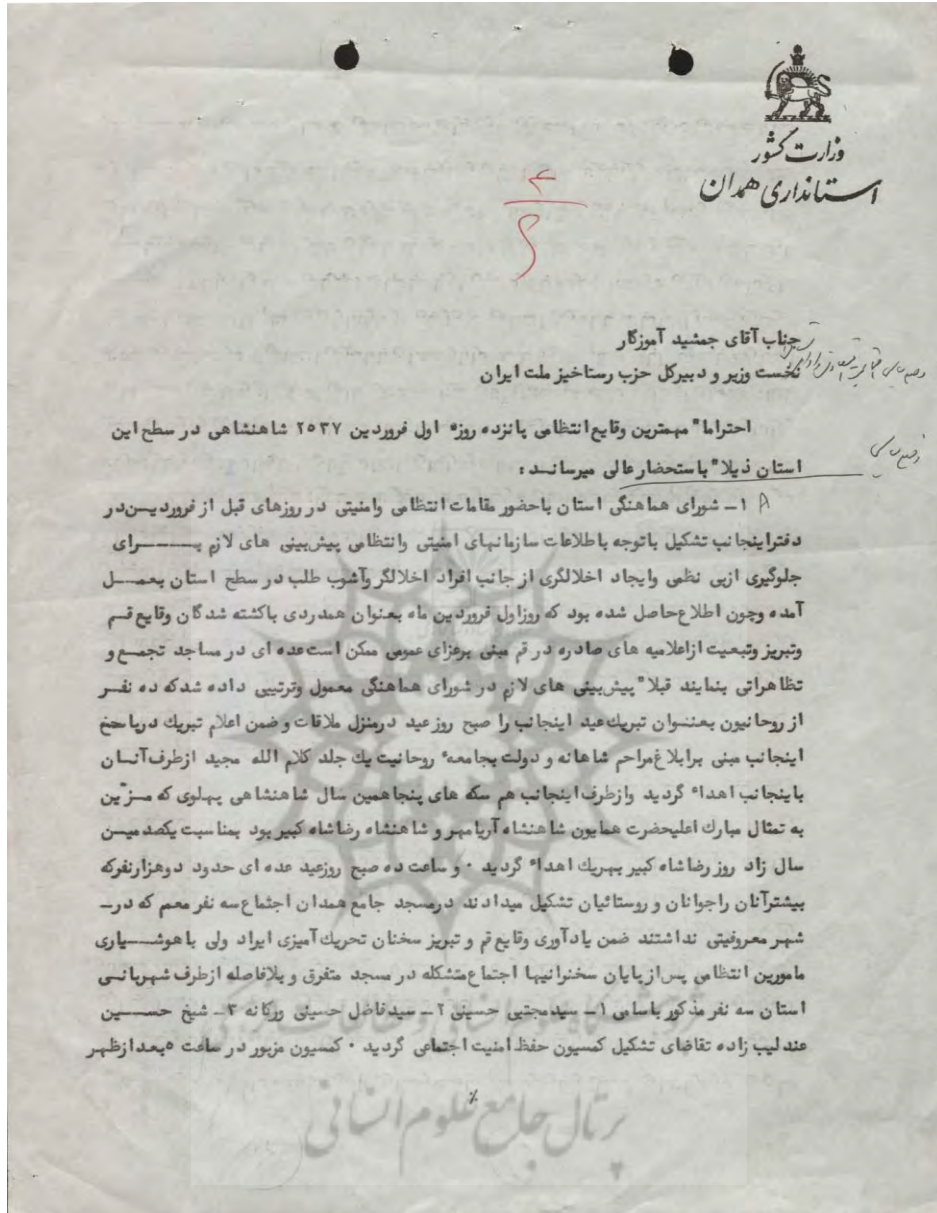 وزارت کشور
استانداری همدان
۴
جناب آقای جمشید آموزگار
نخست وزیر و دبیرکل حزب رستاخیز ملت ایران
احتراما" مهمترین وقایع انتظامی پانزده روزه اول فروردین ۲۵۳۷ شاهنشاهی در سطح این
استان ذیلا" باستحضار عالی میرساند :
۱ـ شورای هماهنگی استان باحضور مقامات انتظامی وامنیتی در روزهای قبل از فروردیــن در
دفتر اینجانب تشکیل باتوجه باطلاعات سازمانهای امنیتی وانتظامی پیش‌بینی های لازم بـــــرای
جلوگیری ازبی نظمی وایجاد اخلالگری از جانب افراد اخلالگر وآشوب طلب در سطح استان بعمــل
آمده وچون اطلاع حاصل شده بود که روزاول فروردین ماه بعنوان همدردی باکشته شدگان وقایع قــم
وتبریز وتبعیت ازاعلامیه های صادره در قم مبنی برعزای عمومی ممکن است عده ای در مساجد تجمــع و
تظاهراتی بنمایند قبلا" پیش‌بینی های لازم در شورای هماهنگی معمول وترتیبی داده شدکه ده نفــر
از روحانیون بعنــوان تبریك عید اینجانب را صبح روز عید درمنزل ملاقات و ضمن اعلام تبریك درپاسخ
اینجانب مبنی برابلاغ مراحم شاهانه و دولت بجامعهٔ روحانیت یك جلد کلام الله مجید ازطرف آنــان
باینجانب اهداء گردید وازطرف اینجانب هم سکه های پنجاهمین سال شاهنشاهی پهلوی که مــزّین
به تمثال مبارك اعلیحضرت همایون شاهنشاه آریامهر و شاهنشاه رضاشاه کبیر بود بمناسبت یکصدمیــن
سال زاد روز رضاشاه کبیر بهریك اهداء گردید ۰ و ساعت ده صبح روزعید عده ای حدود دوهزارنفرکه
بیشترآنان راجوانان و روستائیان تشکیل میدادند درمسجد جامع همدان اجتماع سه نفر معمم که درـ
شهر معروفیتی نداشتند ضمن یادآوری وقایع قم و تبریز سخنان تحریك آمیزی ایراد ولی باهوشــیاری
مامورین انتظامی پس از پایان سخنرانیها اجتماع متشکله در مسجد متفرق و بلافاصله ازطرف شهربانــی
استان سه نفر مذکور باسامی ۱ـ سیدمجتبی حسینی ۲ـ سیدفاضل حسینی ورکانه ۳ـ شیخ حســین
عندلیب زاده تقاضای تشکیل کمسیون حفظ امنیت اجتماعی گردید ۰ کمسیون مزبور در ساعت ۵ بعدازظهر
پرتال جامع علوم انسانی